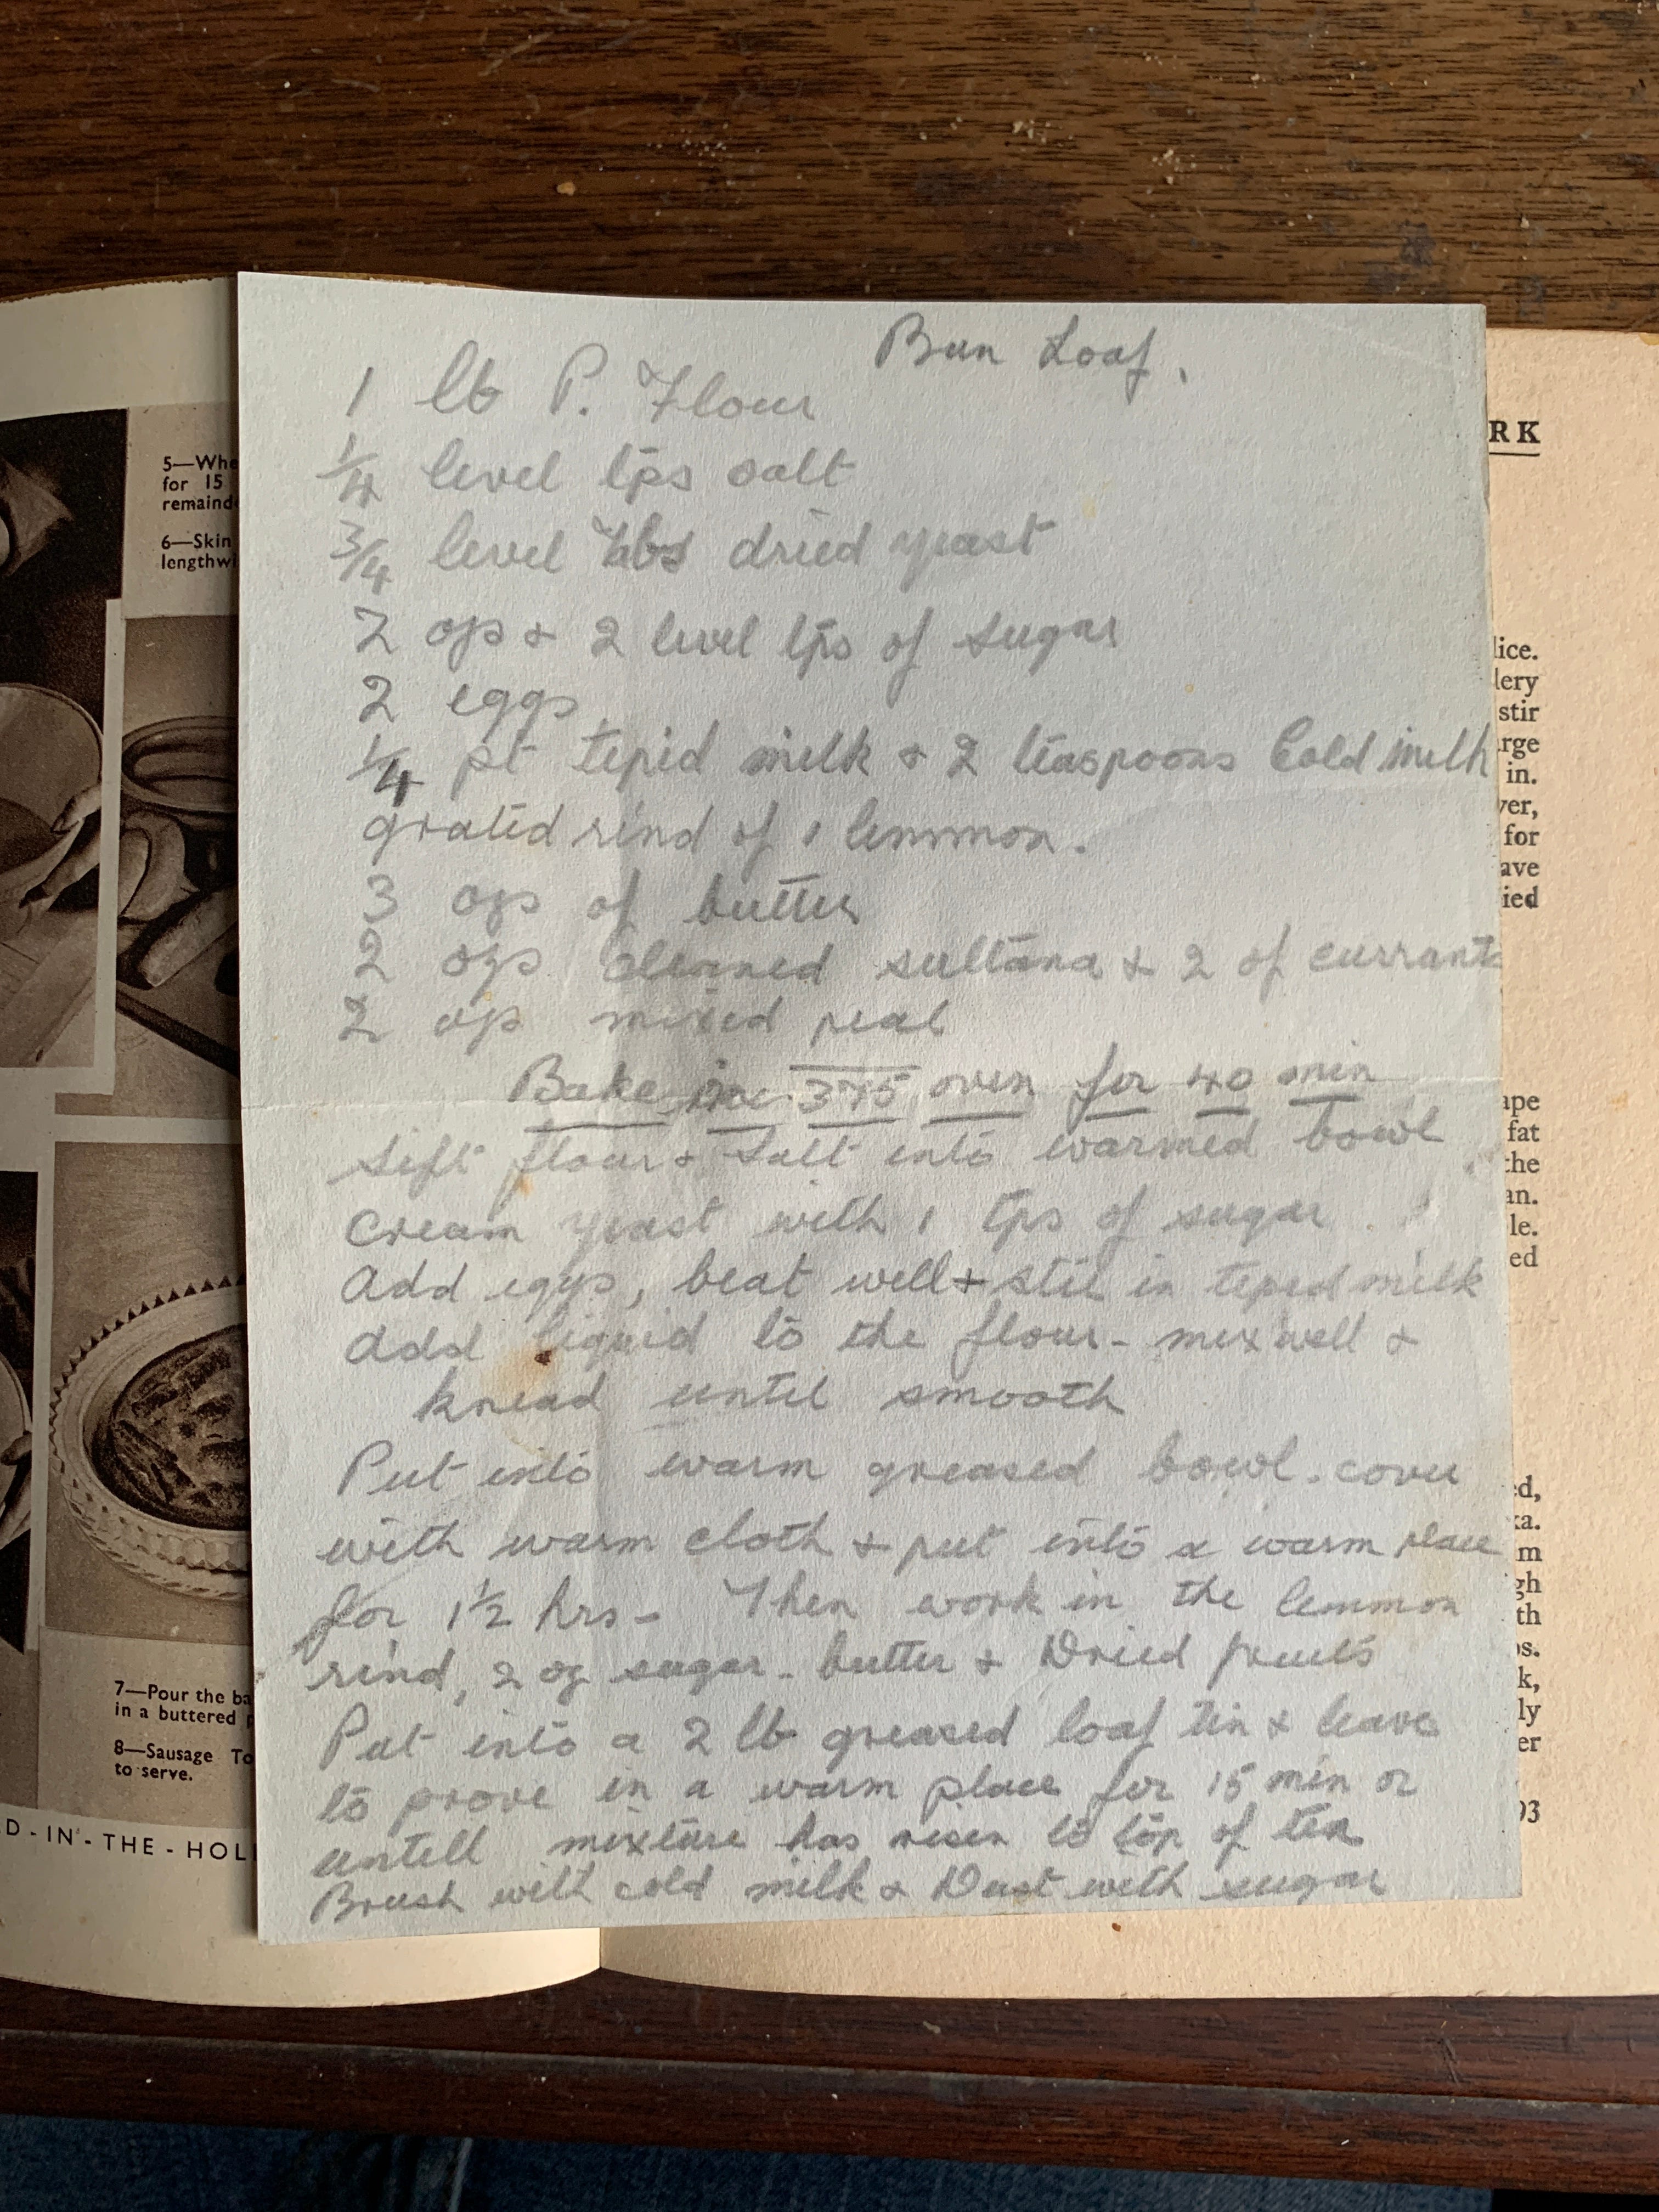 Bun Loaf.
1 lb P. Flour
1/4 level tps salt
3/4 level tbs dried yeast
2 ozs & 2 level tps of sugar
2 eggs
1/4 pt tepid milk & 2 teaspoons Cold milk
grated rind of 1 lemmon.
3 ozs of butter
2 ozs cleaned sultana & 2 of currants
2 ozs mixed peal
Bake in 375 oven for 40 min
Sift flour & Salt into warmed bowl
Cream yeast with 1 tps of sugar
Add eggs, beat well & stir in teped milk
Add liquid to the flour - mix well &
knead until smooth
Put into warm greased bowl. cover
with warm cloth & put into a warm place
for 1 1/2 hrs - Then work in the lemmon
rind, 2 oz sugar - butter & Dried fruits
Put into a 2 lb greased loaf tin & leave
to prove in a warm place for 15 min or
untill mixture has risen to top of tin
Brush with cold milk & Dust with sugar
5—Whe
for 15
remaind
6—Skin
lengthwi
7—Pour the ba
in a buttered
8—Sausage To
to serve.
D-IN-THE-HOL
RK
lice.
lery
stir
rge
in.
ver,
for
ave
ied
ape
fat
the
an.
le.
ed
ed,
ka.
m
gh
th
os.
k,
ly
er
93